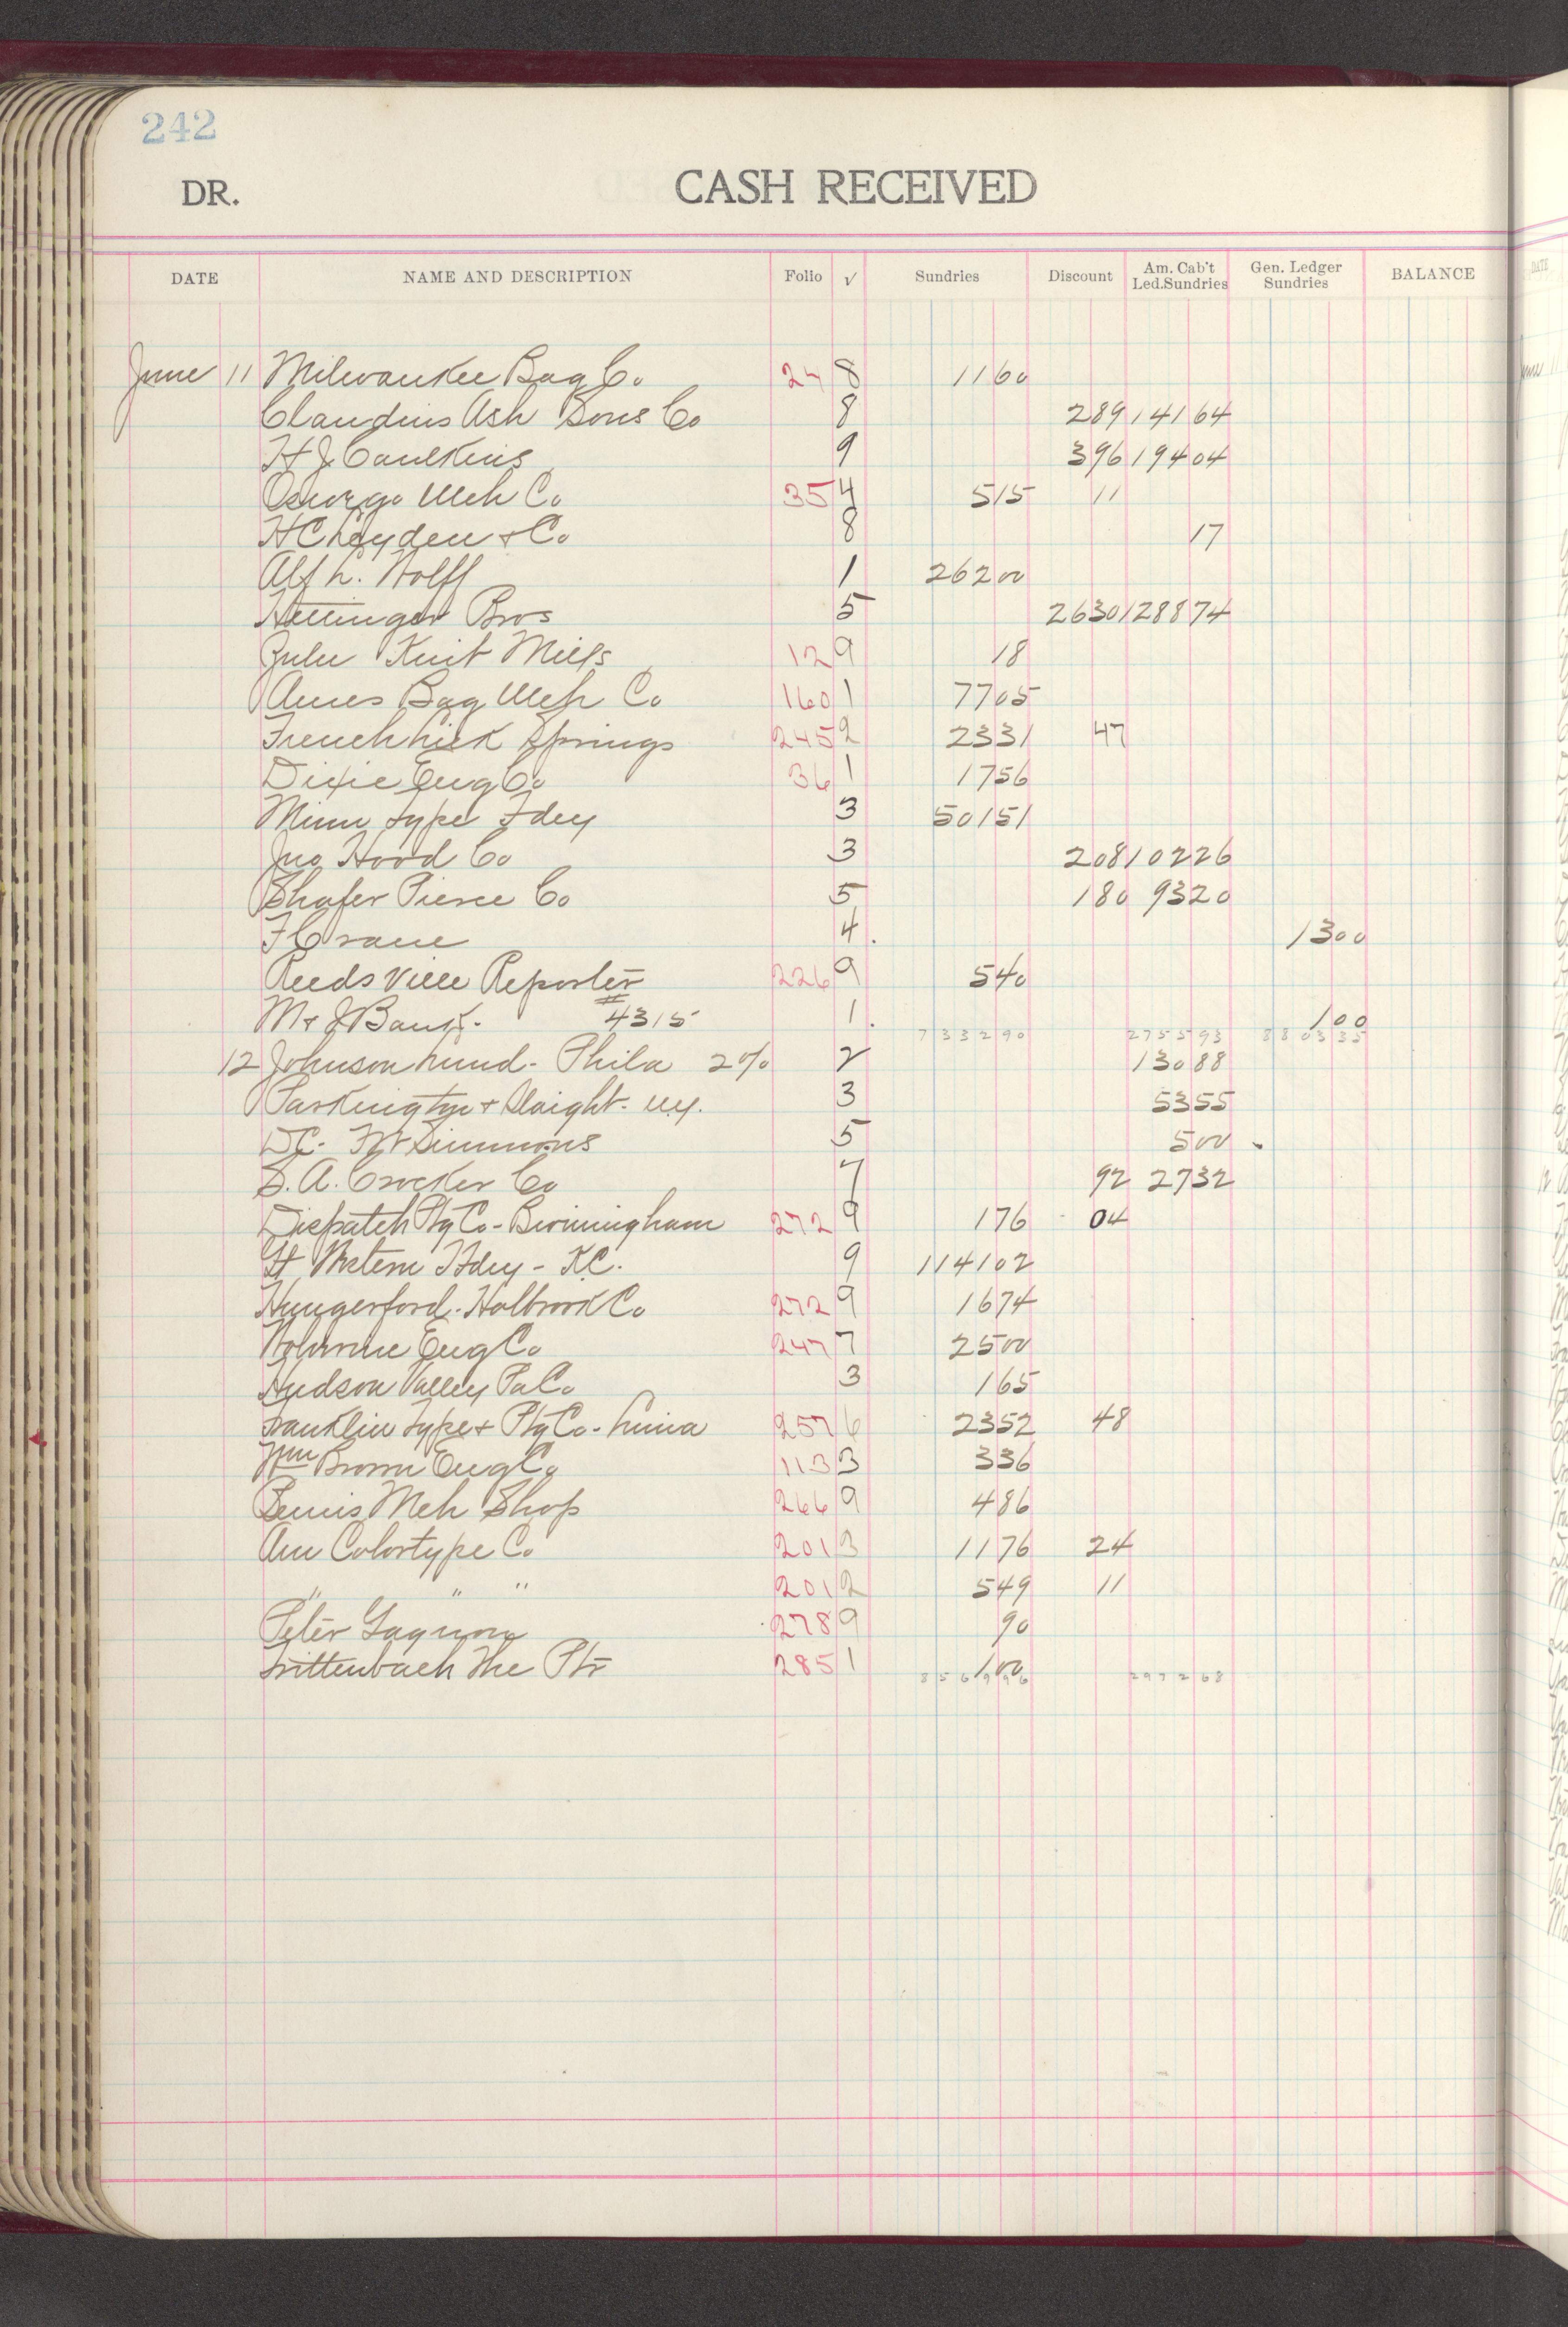 242
DR. CASH RECEIVED
DATE NAME AND DESCRIPTION Folio √ Sundries Discount Am. Cab't Led.Sundries Gen. Ledger Sundries BALANCE
June 11 Milwaukee Bag Co 24 8 11 60
Claudius Ash Sons Co 8 2 89 141 64
H J Caulkins 9 3 96 194 04
Oswego Mch Co 35 4 5 15 11
H C & Co 8 17
Alf L. Wolff 1 262 00
Hettinger Bros 5 26 30 1288 74
Zulu Knit Mills 12 9 18
Ames Bag Mch Co 160 1 77 05
French Lick Springs 245 2 23 31 47
Dixie Eng Co 36 1 17 56
Minn Type Fdry 3 501 51
Jno Hood Co 3 2 08 102 26
Shafer Pierce Co 5 1 80 93 20
F Crane 4 . 13 00
Reedsville Reporter 226 9 5 40
M & J Bank. #4315 1 . 1 00
7 332 90 2755 93 8803 35
12 Johnson Lund - Phila 2% 2 130 88
& Slaight - N.Y. 3 53 55
DC - Simmons 5 5 00
S. A. Crocker Co 7 92 27 32
Dispatch Ptg Co - Birmingham 272 9 1 76 04
Gt Western T Fdry - K.C. 9 1141 02
Hungerford - Holbrook Co 272 9 16 74
Eng Co 247 7 25 00
Hudson Valley Pa Co 3 1 65
Franklin Type & Ptg Co - Lima 257 6 23 52 48
Wm Brown Eng Co 113 3 3 36
Mch Shop 266 9 4 86
Am Colortype Co 201 3 11 76 24
" " " 201 2 5 49 11
Peter Gagnon 278 9 90
Trittenbach The Ptr 285 1 1 00
8 561 96 2972 68